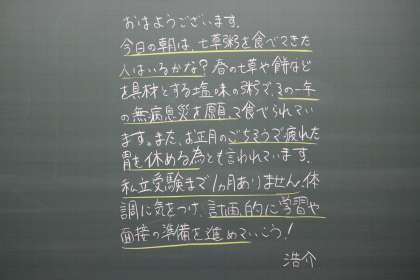 おはようございます.
今日の朝は、七草粥を食べてきた
人はいるかな？春の七草や餅など
を具材とする塩味の粥で、その一年
の無病息災を願って食べられてい
ます。また、お正月のごちそうで疲れた
胃を休める為とも言われています.
私立受験まで1ヵ月ありません.体
調に気をつけ、計画的に学習や
面接の準備を進めていこう！
浩介